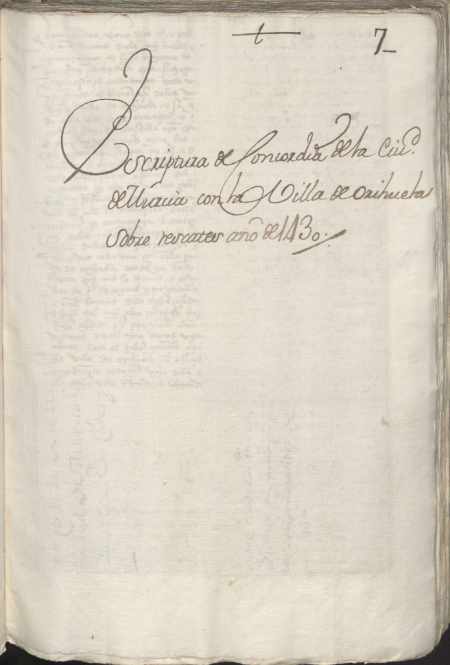 7
Escriptura de Concordia de la Ciud.
de Murcia con la Villa de Orihuela
sobre rescates año de 1430.